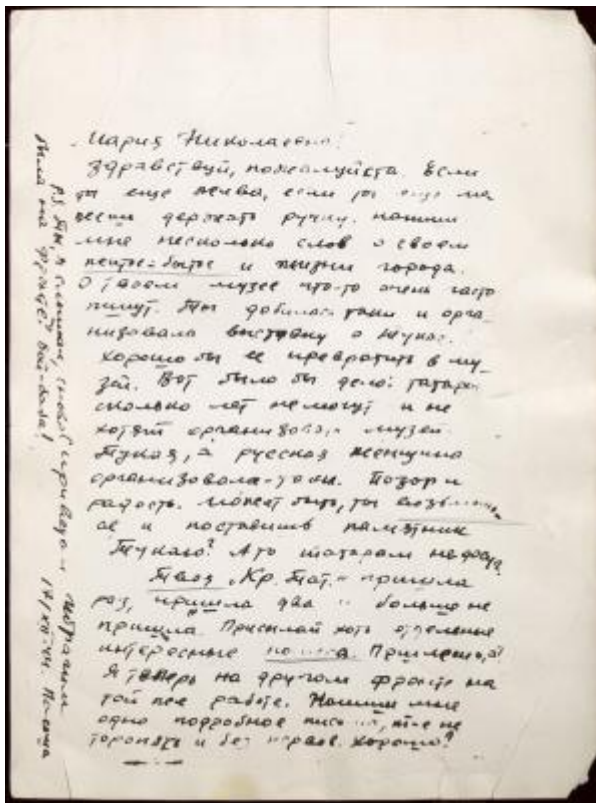 Мария Николаевна!
Здравствуй, пожалуйста. Если
ты еще жива, если ты еще мо
держать ручку. напиши
мне несколько слов о своем
житье-бытье и жизни города.
О твоем музее что-то очень часто
пишут. Ты добилась таки и орга-
низовала выставку о Тукае.
Хорошо бы ее превратить в му-
зей. Вот было бы дело: татары
сколько лет не могут и не
хотят организовать музей
Тукая, а русская женщина
организовала-таки. Позор и
радость. Может быть, ты возьмешь
ся и поставишь памятник
Тукаю? А то татарам
Твоя „Кр. Тат.“ пришла
раз, пришла два и больше не
пришла. Присылай хоть отдельные
интересные номера. Пришлешь, а?
Я теперь на другом фронте на
той же работе. Напиши мне
одно подробное письмо, не
торопясь и без нервов. Хорошо?
17/XII-44. Польша
P.S. Ты, я слышал, снова
была на фронте? Вай-бала!